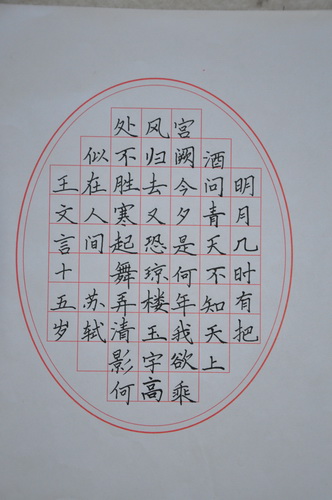 明月几时有把
酒问青天不知天上
宫阙今夕是何年我欲乘
风归去又恐琼楼玉宇高
处不胜寒起舞弄清影何
似在人间 苏轼
王文言十五岁